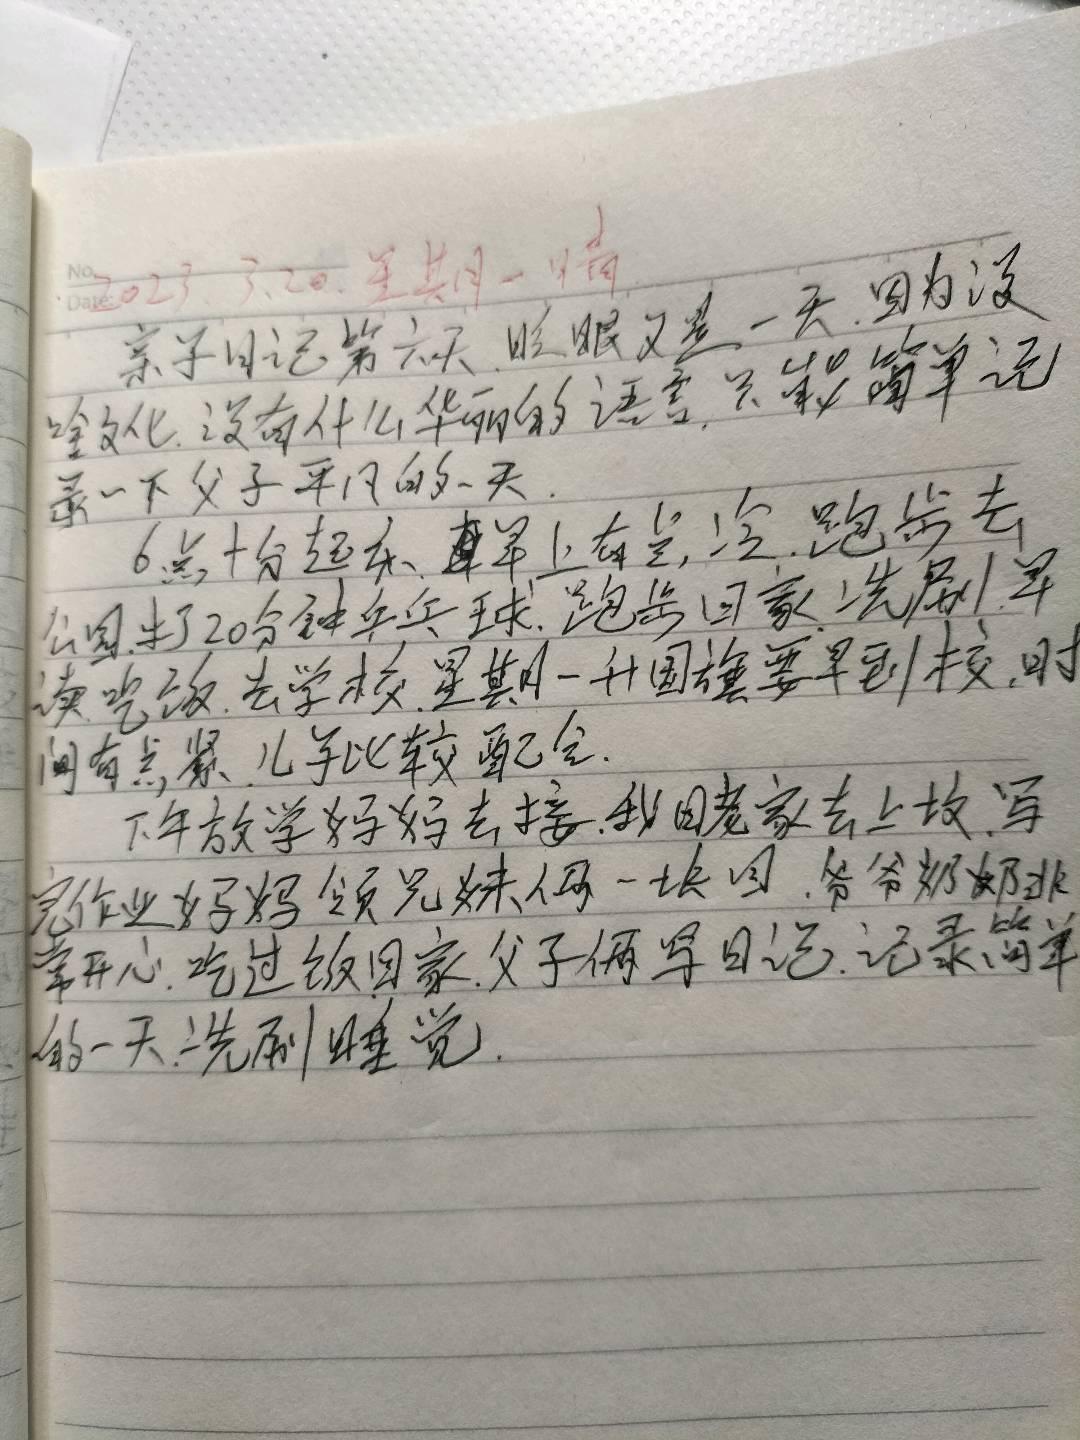 No.
Date:
2023.3.20.星期一晴
亲子日记第六天.眨眼又是一天.因为没
啥文化.没有什么华丽的语言.只能简单记
录一下父子平凡的一天.
6点十分起床、早上有点冷.跑步去
公园.打了20分钟乒乓球.跑步回家.洗刷.早
读.吃饭.去学校.星期一升国旗要早到校.时
间有点紧、儿子比较配合.
下午放学妈妈去接.我回老家去上坟.写
完作业妈妈领兄妹俩一块回.爷爷奶奶非
常开心.吃过饭回家.父子俩写日记.记录简单
的一天.洗刷睡觉.